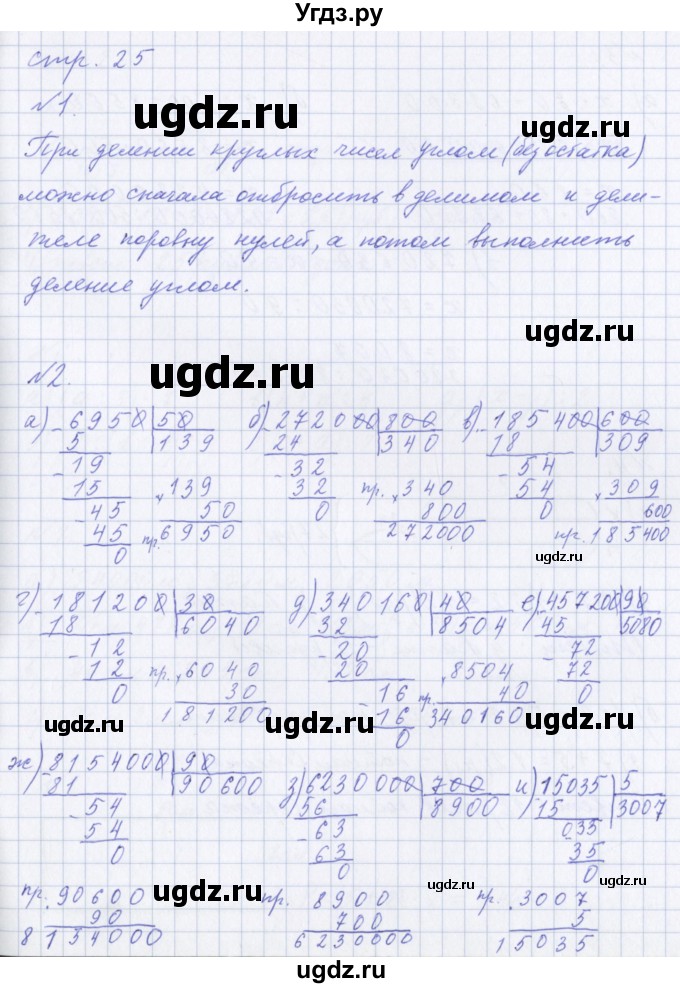 Угдз.ру
стр. 25
ugdz.ru
№1.
При делении круглых чисел углом (без остатка)
можно сначала отбросить в делимом и дели-
теле поровну нулей, а потом выполнить
деление углом.
ugdz.ru
№2.
ugdz.ru
а) 6950 | 50 б) 272000 | 800 в) 185400 | 600
5 139 24 340 18 309
19 32 54
15 139 32 пр. 340 54 309
45 50 0 800 0 600
45 пр. 6950 272000 пр. 185400
0
ugdz.ru
г) 181200 | 30 д) 340160 | 40 е) 457200 | 90
18 6040 32 8504 45 5080
12 20 72
12 пр. 6040 20 8504 72
0 30 16 пр. 40 0
181200 16 340160
0
ugdz.ru ugdz.ru ugdz.ru
ж) 8154000 | 90 з) 6230000 | 700 и) 15035 | 5
81 90600 56 8900 15 3007
54 63 035
54 63 35
0 0 0
ugdz.ru ugdz.ru ugdz.ru
пр. 90600 8900 пр. 3007
90 700 5
8134000 6230000 15035
ugdz.ru